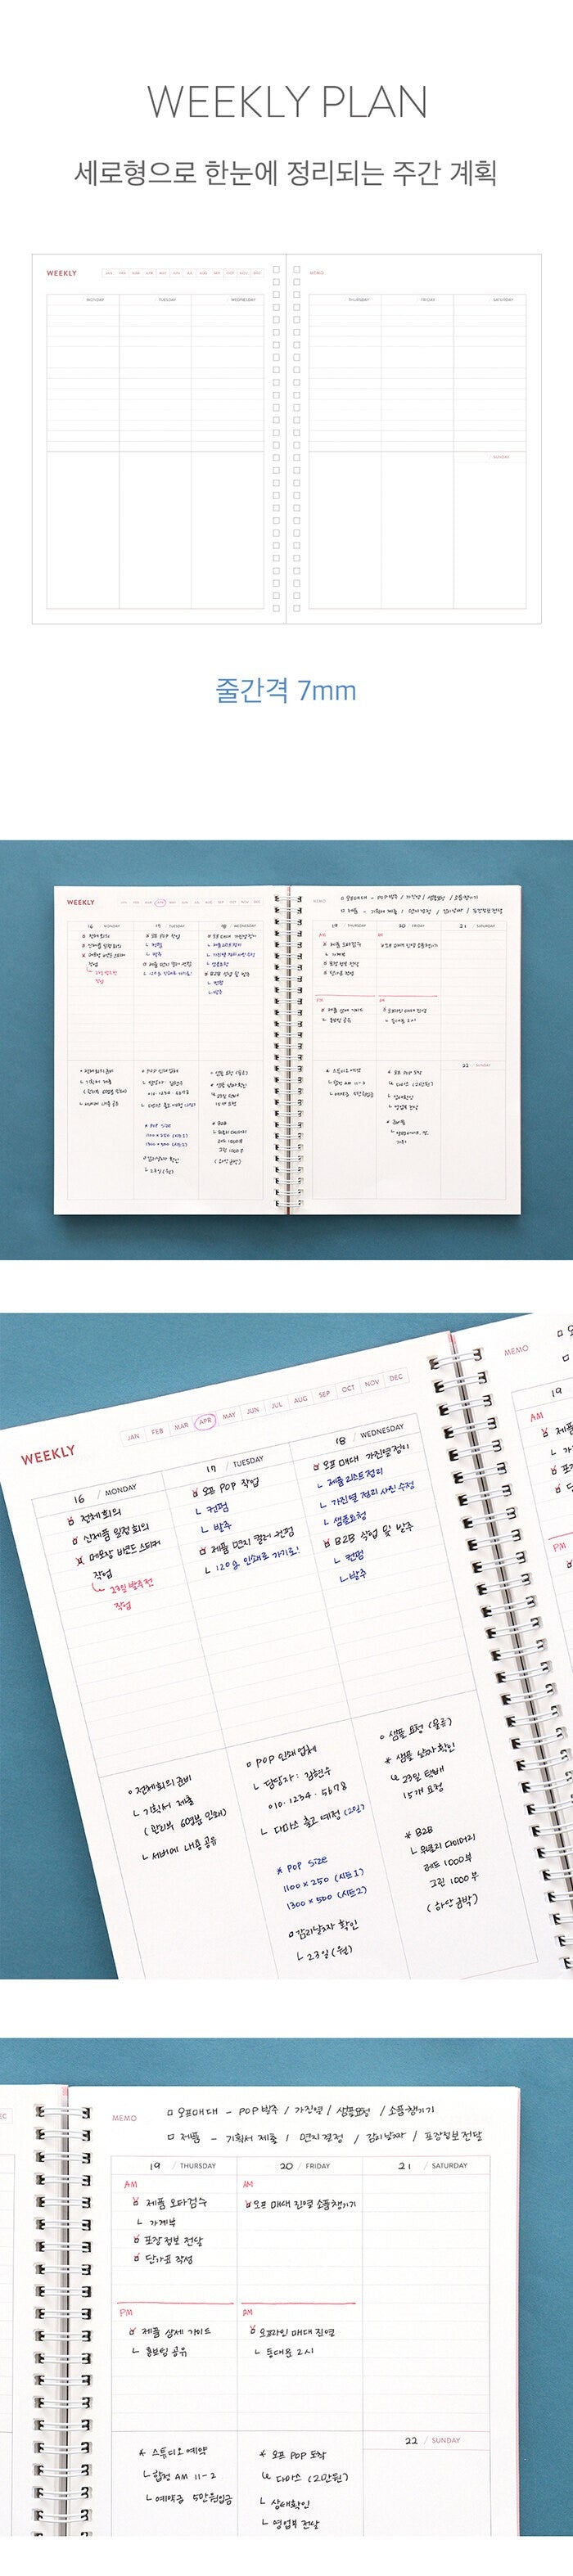 WEEKLY PLAN
세로형으로 한눈에 정리되는 주간 계획
WEEKLY
JAN FEB MAR APR MAY JUN JUL AUG SEP OCT NOV DEC
MEMO
MONDAY
TUESDAY
WEDNESDAY
THURSDAY
FRIDAY
SATURDAY
SUNDAY
줄간격 7mm
WEEKLY
MEMO
16 / MONDAY
17 / TUESDAY
18 / WEDNESDAY
19 / THURSDAY
20 / FRIDAY
21 / SATURDAY
22 / SUNDAY
WEEKLY
JAN FEB MAR APR MAY JUN JUL AUG SEP OCT NOV DEC
MEMO
16 / MONDAY
전체회의
신제품 일정 회의
메모장 밴드 스티커
작업
23일 발주전
작업
17 / TUESDAY
오프 POP 작업
ㄴ 컨펌
ㄴ 발주
제품 면지 컬러 컨펌
ㄴ 120g 인쇄로 가기로!
18 / WEDNESDAY
오프 매대 가진열 정리
ㄴ 제품 리스트 정리
ㄴ 가진열 정리 사진 수정
ㄴ 샘플요청
B2B 작업 및 발주
ㄴ 컨펌
ㄴ 발주
19
AM
PM
전체회의 준비
ㄴ 기획서 제출
ㄴ 세비에 내용 공유
POP 인쇄 업체
ㄴ 담당자: 김현수
010.1234.5678
ㄴ 다마스 출고 예정 (2일)
* POP size
1100 x 250 (시트1)
1300 x 500 (시트2)
감리날짜 확인
ㄴ 23일 (월)
샘플 요청 (물류)
* 샘플 날짜 확인
ㄴ 23일 택배
15개 요청
* B2B
ㄴ 위클리 다이어리
레드 1000부
그린 1000부
(하단 금박)
MEMO
□ 오프매대 - POP 발주 / 가진열 / 샘플요청 / 소품챙기기
□ 제품 - 기획서 제출 / 면지결정 / 감리날짜 / 포장정보전달
19 / THURSDAY
20 / FRIDAY
21 / SATURDAY
AM
제품 오타검수
ㄴ 가계부
포장 정보 전달
단가표 작성
AM
오프 매대 진열 소품챙기기
PM
제품 상세 가이드
ㄴ 홍보팀 공유
오프라인 매대 진열
ㄴ 동대문 2시
22 / SUNDAY
* 스튜디오 예약
ㄴ 합정 AM 11-2
ㄴ 예약금 5만원입금
* 오프 POP 도착
ㄴ 다마스 (2만원)
ㄴ 상태확인
ㄴ 영업부 전달